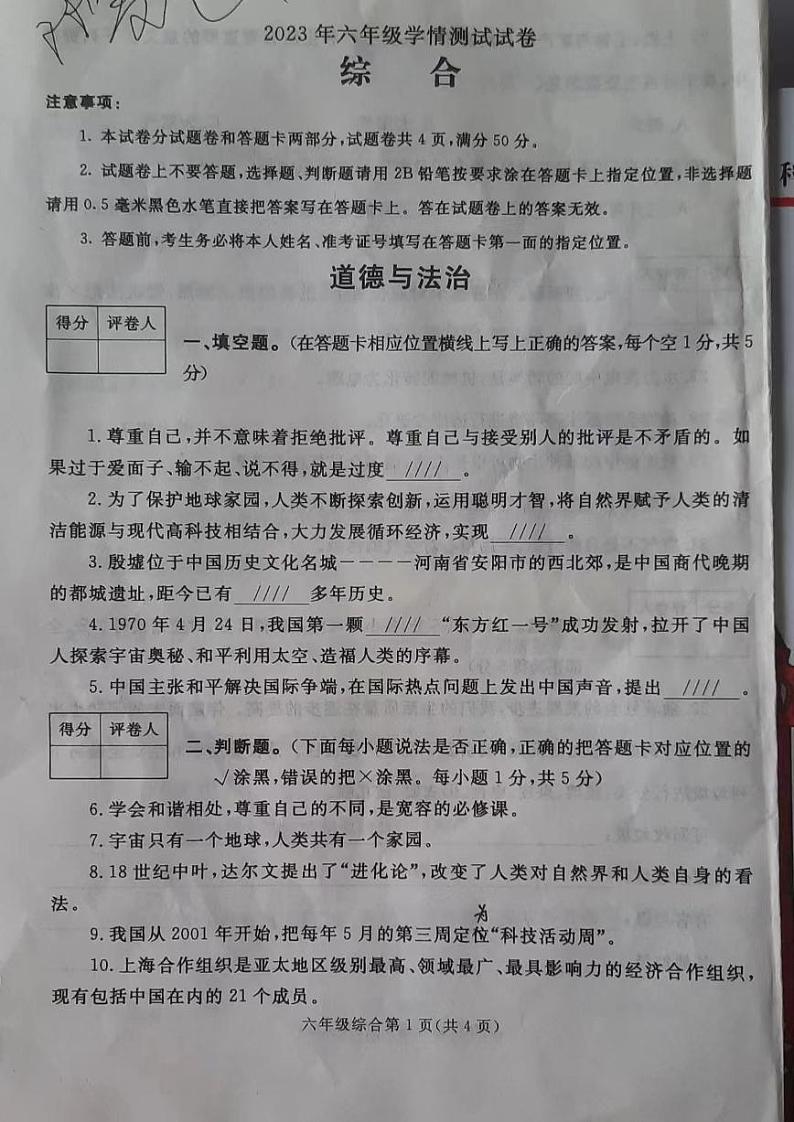 2023年六年级学情测试试卷
综 合
注意事项：
1. 本试卷分试题卷和答题卡两部分,试题卷共4页,满分50分。
2. 试题卷上不要答题,选择题、判断题请用2B铅笔按要求涂在答题卡上指定位置,非选择题
请用0.5毫米黑色水笔直接把答案写在答题卡上。答在试题卷上的答案无效。
3. 答题前,考生务必将本人姓名、准考证号填写在答题卡第一面的指定位置。
道德与法治
得分 评卷人
一、填空题。(在答题卡相应位置横线上写上正确的答案,每个空1分,共5
分)
1. 尊重自己,并不意味着拒绝批评。尊重自己与接受别人的批评是不矛盾的。如
果过于爱面子、输不起、说不得,就是过度 //// 。
2. 为了保护地球家园,人类不断探索创新,运用聪明才智,将自然界赋予人类的清
洁能源与现代高科技相结合,大力发展循环经济,实现 //// 。
3. 殷墟位于中国历史文化名城————河南省安阳市的西北郊,是中国商代晚期
的都城遗址,距今已有 //// 多年历史。
4. 1970年4月24日,我国第一颗 //// “东方红一号”成功发射,拉开了中国
人探索宇宙奥秘、和平利用太空、造福人类的序幕。
5. 中国主张和平解决国际争端,在国际热点问题上发出中国声音,提出 //// 。
得分 评卷人
二、判断题。(下面每小题说法是否正确,正确的把答题卡对应位置的
√涂黑,错误的把×涂黑。每小题1分,共5分)
6. 学会和谐相处,尊重自己的不同,是宽容的必修课。
7. 宇宙只有一个地球,人类共有一个家园。
8. 18世纪中叶,达尔文提出了“进化论”,改变了人类对自然界和人类自身的看
法。
为
9. 我国从2001年开始,把每年5月的第三周定位“科技活动周”。
10. 上海合作组织是亚太地区级别最高、领域最广、最具影响力的经济合作组织,
现有包括中国在内的21个成员。
六年级综合第1页(共4页)